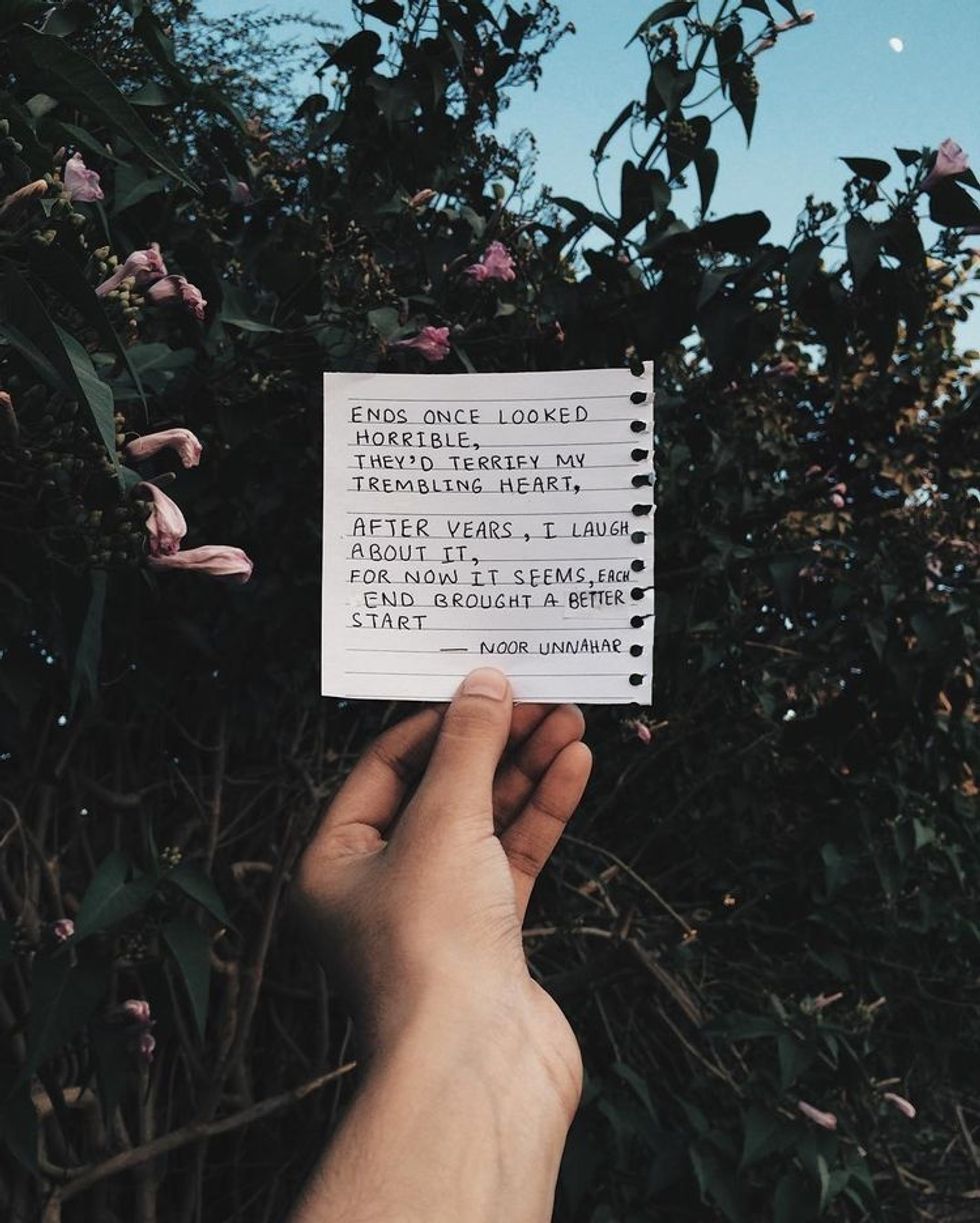 ENDS ONCE LOOKED
HORRIBLE,
THEY'D TERRIFY MY
TREMBLING HEART,
AFTER YEARS, I LAUGH
ABOUT IT,
FOR NOW IT SEEMS, EACH
END BROUGHT A BETTER
START
— NOOR UNNAHAR